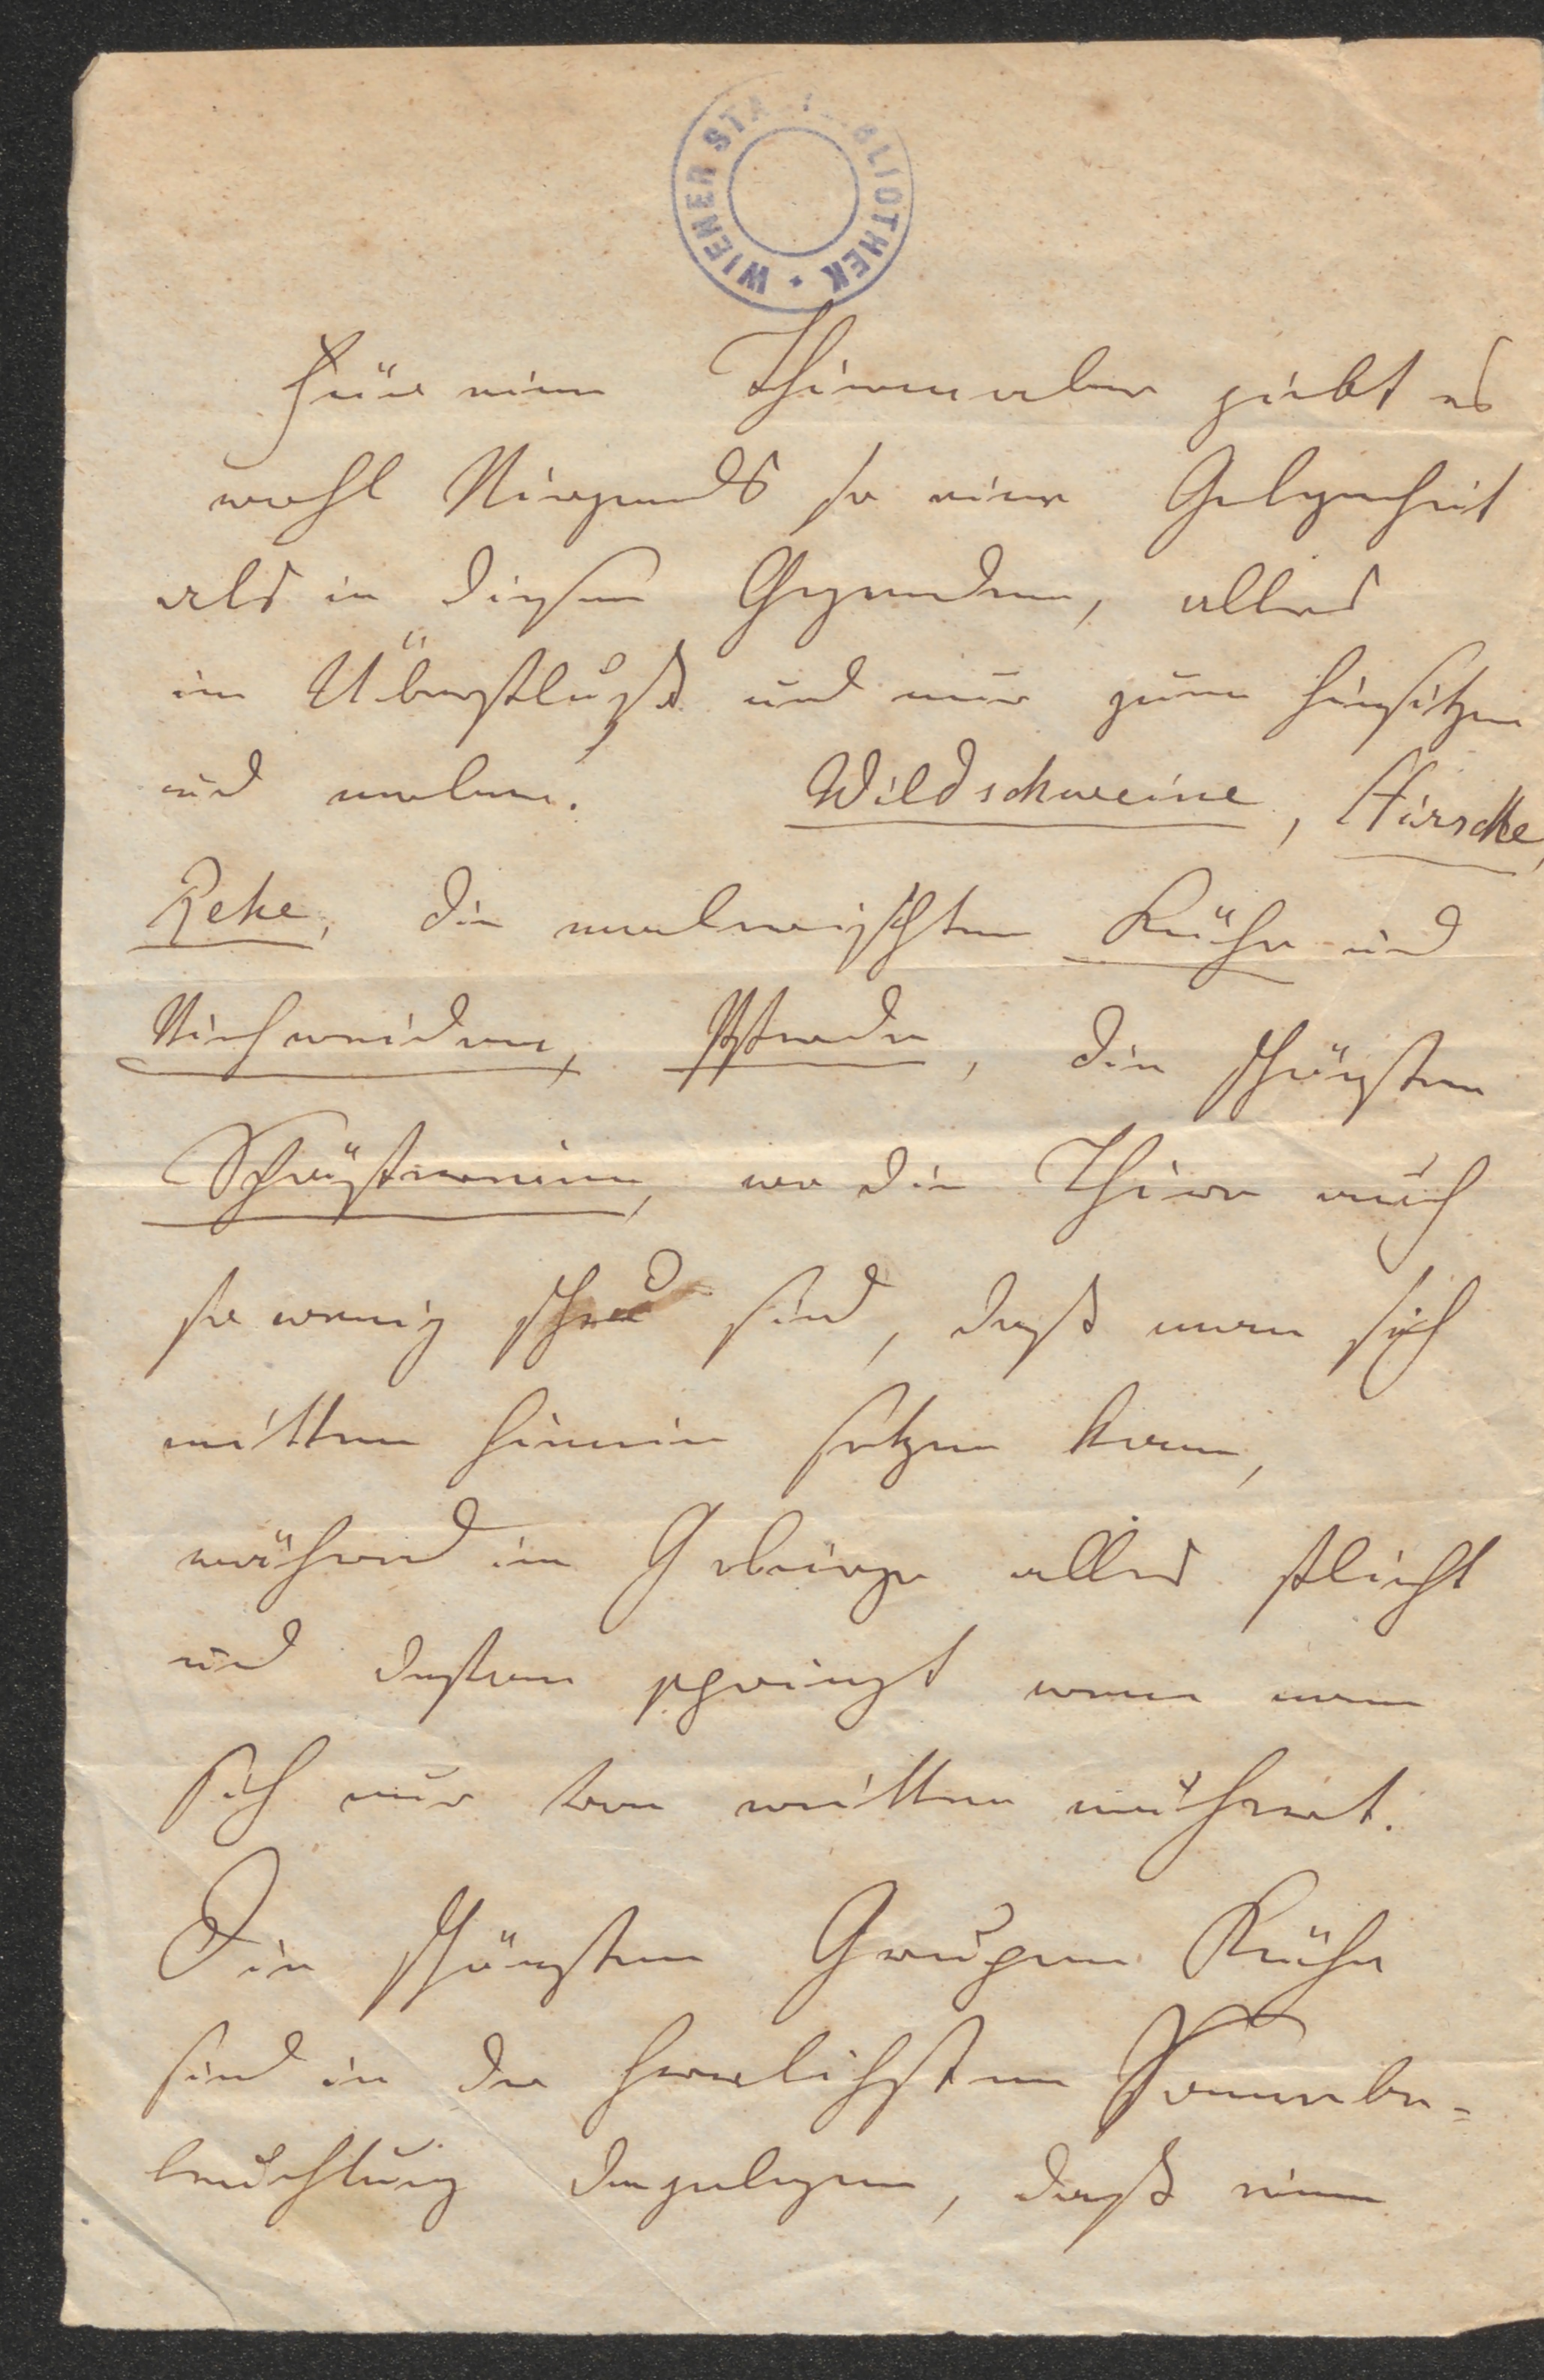 WIENER STADTBIBLIOTHEK
Für einen Thiermaler giebt es
wohl Nirgends so eine Gelegenheit
als in diesen Gegenden, alles
im Überfluß und nur zum hinsitzen
und malen. Wildschweine, Hirsche,
Rehe, die malerischten Kühe und
Viehweiden, Pferde, die schönsten
Schafstereien, wo die Thiere auch
so wenig scheu sind, daß man sich
mitten hinein setzen kann,
während im Gebirge alles flieht
und davon springt wenn man
sich nur von weitten nähert.
Die schönsten Grupen Kühe
sind in der herrlichsten Sonnenbe-
leuchtung dagelegen, daß einem